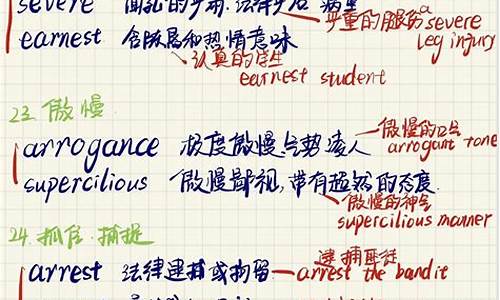 severe
严重的腿伤 a severe leg injury
earnest 含脉局和热情意味
认真的学生
earnest student
23. 傲慢
arrogance 极度傲慢,气势凌人
傲慢的口气
arrogant tone
supercilious 傲慢鄙视,带有超然的态度
傲慢的神气
supercilious manner
24. 抓住.捕捉
arrest 法律逮捕或拘留
逮捕匪徒
arrest the bandit